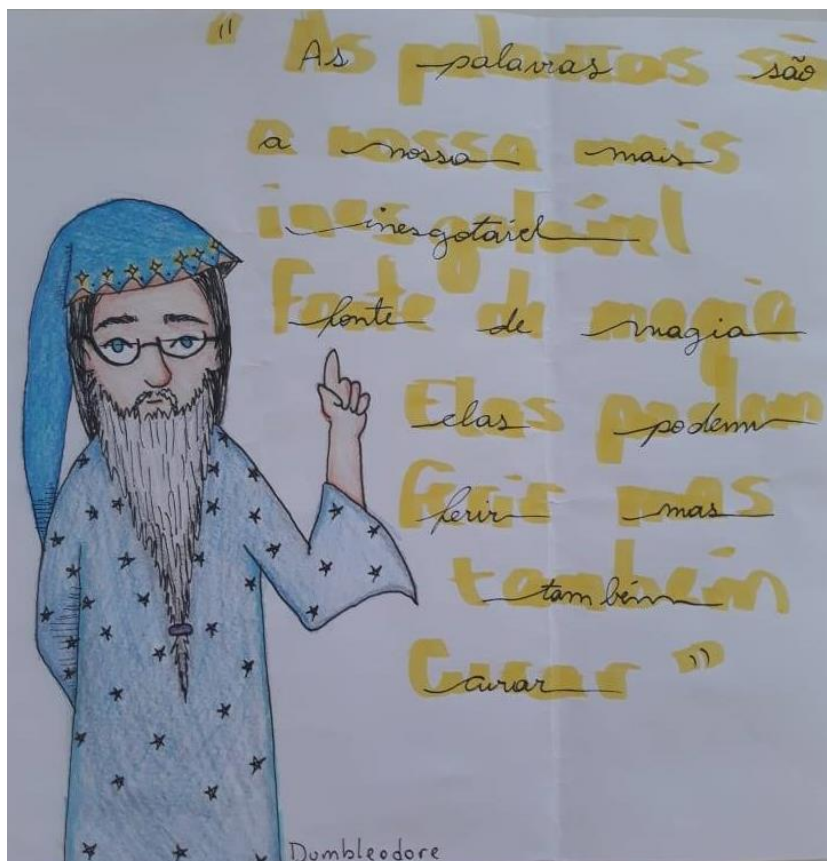 " As palavras são
a nossa mais
inesgotável
fonte de magia
elas podem
ferir mas
também
curar "
Dumbleodore